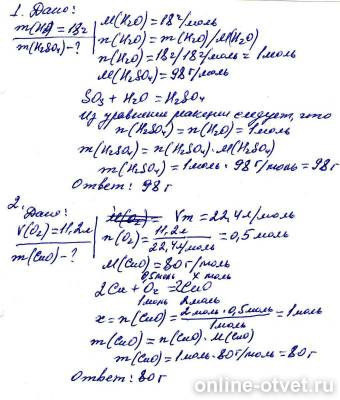 1. Дано:
m(H₂O)=18г
m(H₂SO₄)-?
M(H₂O)=18г/моль
n(H₂O)=m(H₂O)/M(H₂O)
n(H₂O)=18г/18г/моль=1моль
M(H₂SO₄)=98г/моль
SO₃+H₂O=H₂SO₄
Из уравнения реакции следует, что
n(H₂SO₄)=n(H₂O)=1моль
m(H₂SO₄)=n(H₂SO₄)·M(H₂SO₄)
m(H₂SO₄)=1моль·98г/моль=98г
Ответ: 98г
2. Дано:
V(O₂)=11,2л
m(CuO)-?
Vm=22,4л/моль
n(O₂)=11,2л/22,4л/моль=0,5моль
M(CuO)=80г/моль
0,5моль x моль
2Cu+O₂=2CuO
1моль 2моль
x=n(CuO)=2моль·0,5моль/1моль=1моль
m(CuO)=n(CuO)·M(CuO)
m(CuO)=1моль·80г/моль=80г
Ответ: 80г
online-otvet.ru